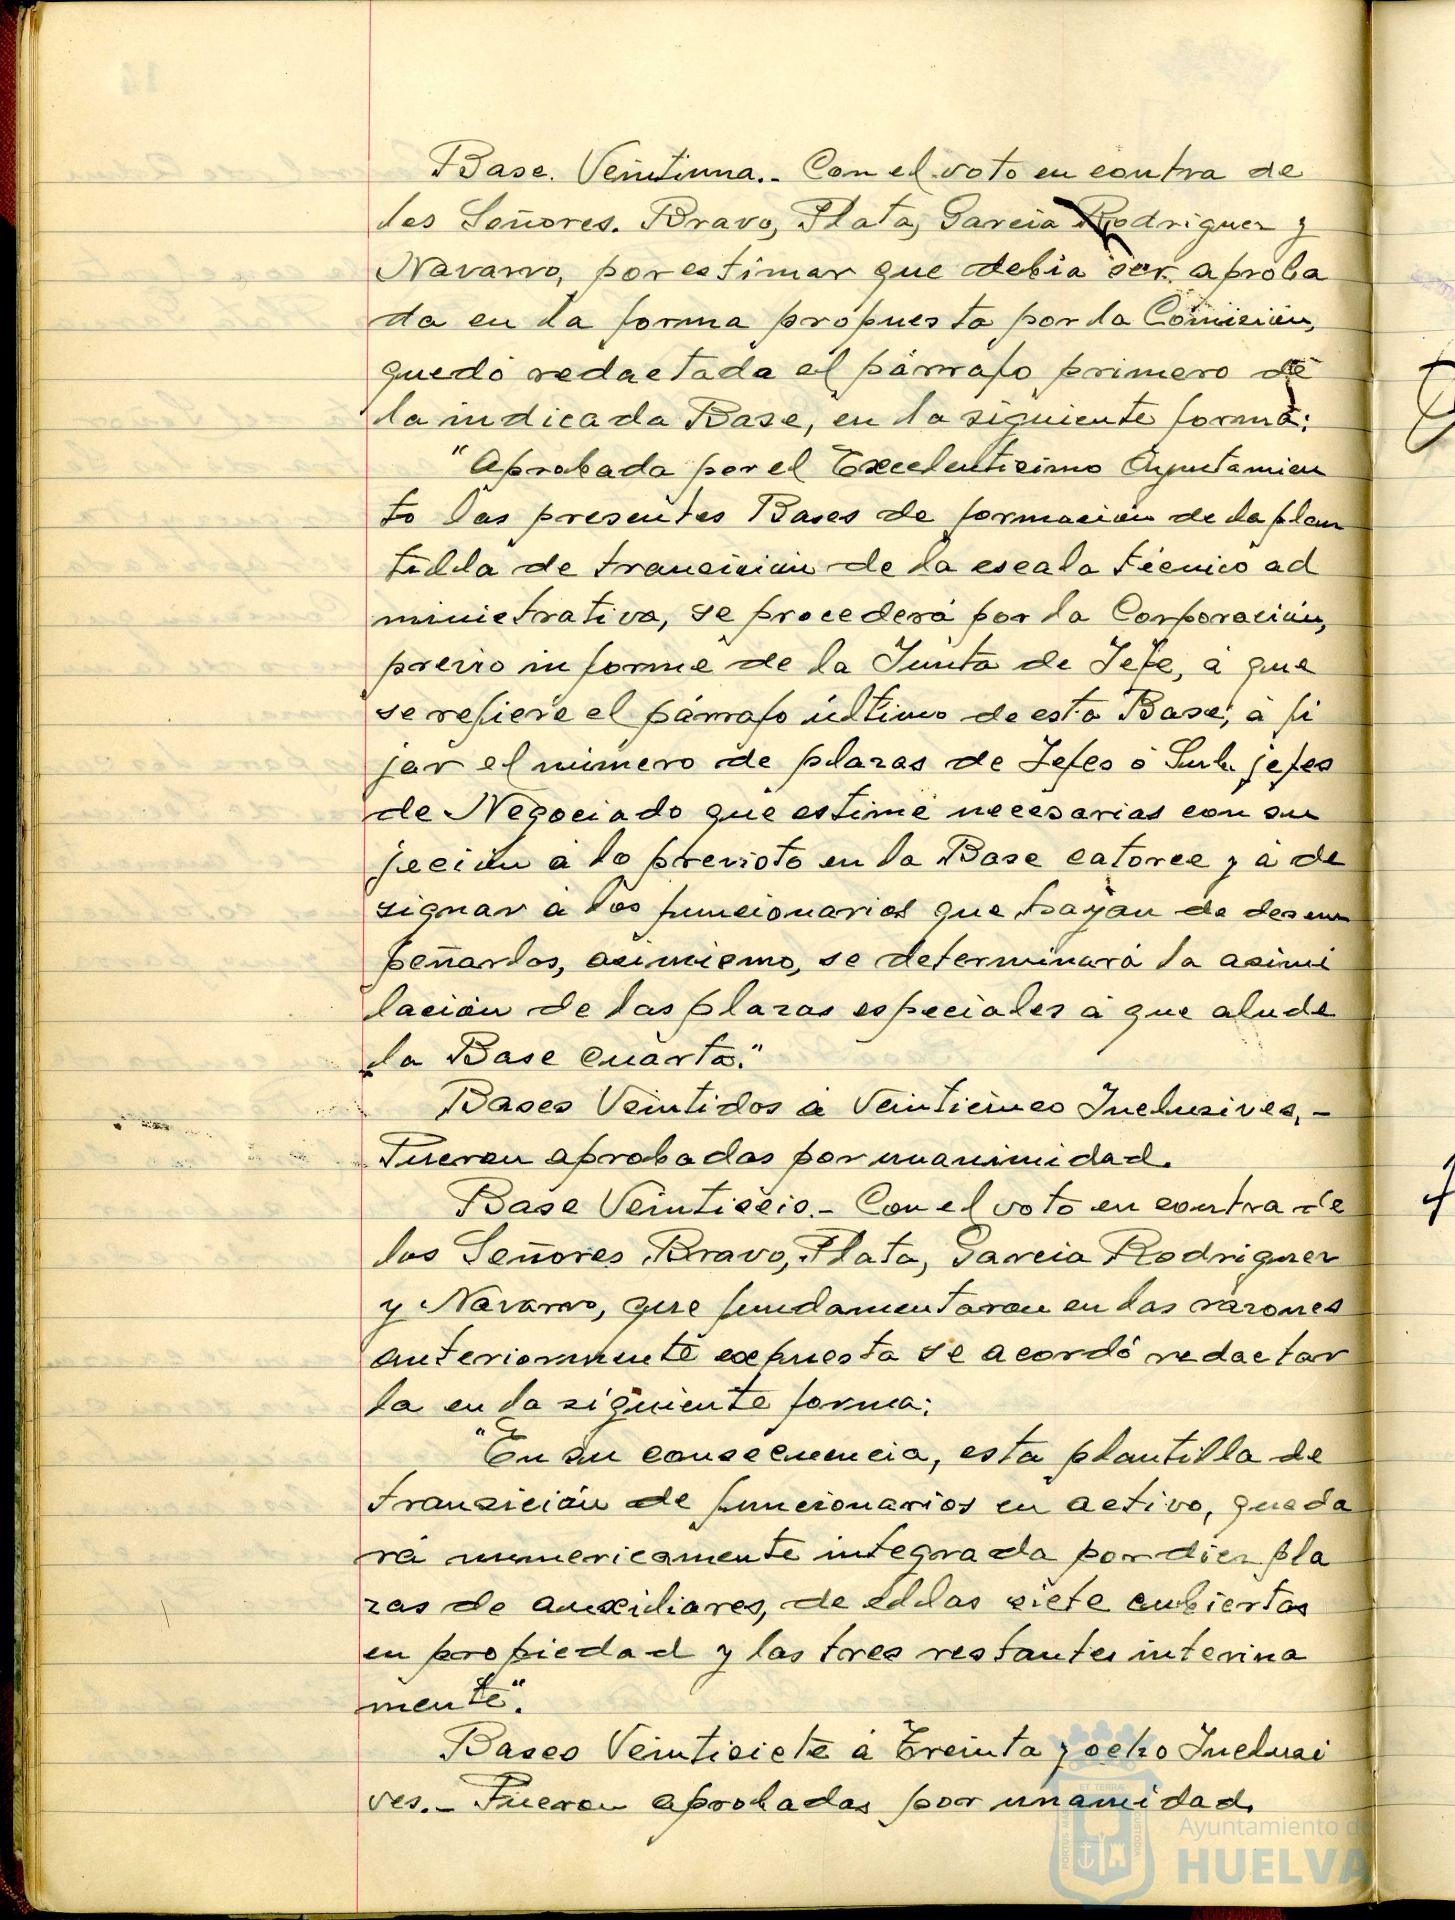 Base. Veintiuna.- Con el voto en contra de
los Señores. Bravo, Plata, Garcia Rodriguez y
Navarro, por estimar que debia ser aproba
da en la forma propuesta por la Comisión,
quedó redactada el párrafo primero de
la indicada Base, en la siguiente forma:
"Aprobada por el Excelentisimo Ayuntamien
to las presentes Bases de formación de la plan
tilla de transición de la escala técnico ad
ministrativa, se procederá por la Corporación,
previo informe de la Junta de Jefe, á que
se refiere el párrafo último de esta Base, á fi
jar el número de plazas de Jefes ó Sub jefes
de Negociado que estime necesarias con su
jección á lo previsto en la Base catorce y á de
signar á los funcionarios que hayan de desem
peñarlos, asimismo, se determinará la asimi
lación de las plazas especiales á que alude
la Base cuarta."
Bases Veintidos á Veinticinco Inclusives.-
Fueron aprobadas por unanimidad.
Base Veintiseis.- Con el voto en contra de
los Señores Bravo, Plata, Garcia Rodriguez
y Navarro, que fundamentaron en las razones
anteriormente expuesta se acordó redactar
la en la siguiente forma:
"En su consecuencia, esta plantilla de
transición de funcionarios en activo, queda
rá numericamente integrada por diez pla
zas de auxiliares, de ellas siete cubiertas
en propiedad y las tres restantes interina
mente".
Bases Veintisiete á Treinta y ocho Inclusi
ves.- Fueron aprobadas por unamidad.
ET TERRAE
PORTUS MARIS
CUSTODIA
Ayuntamiento de
HUELVA